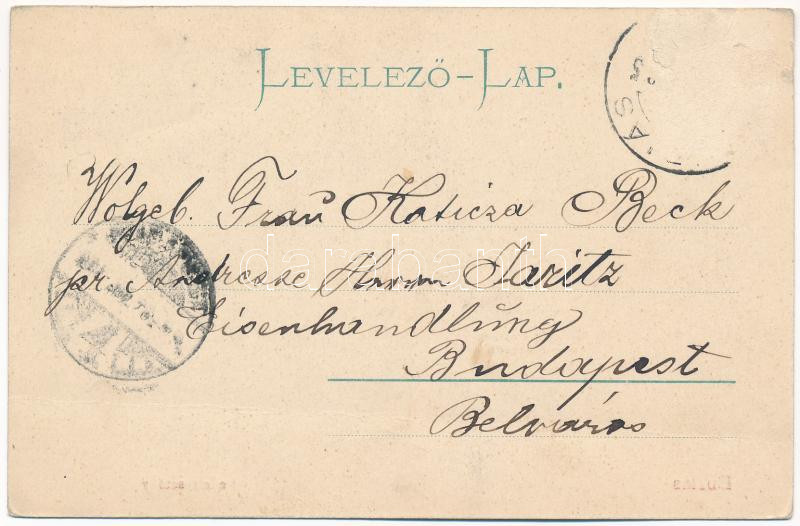 LEVELEZŐ-LAP.
Wolgeb. Frau Katicza Beck
pr Andresse Herrn Jaritz
Eisenhandlung
Budapest
Belváros
darabanth